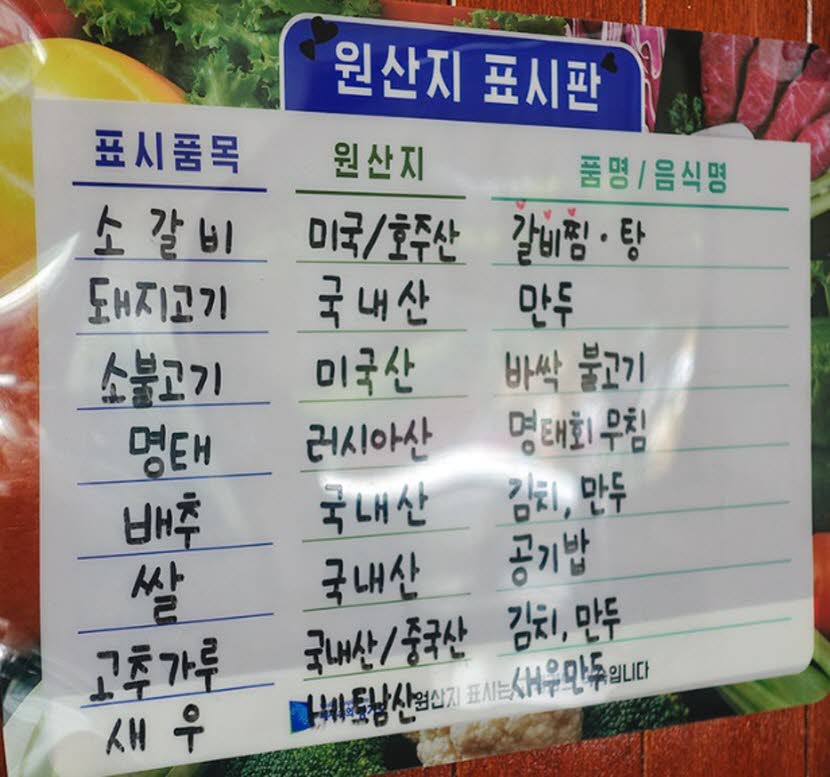 원산지 표시판
표시품목 원산지 품명/음식명
소갈비 미국/호주산 갈비찜·탕
돼지고기 국내산 만두
소불고기 미국산 바싹 불고기
명태 러시아산 명태회무침
배추 국내산 김치, 만두
쌀 국내산 공기밥
고추가루 국내산/중국산 김치, 만두
새우 베트남산 새우만두
원산지 표시는